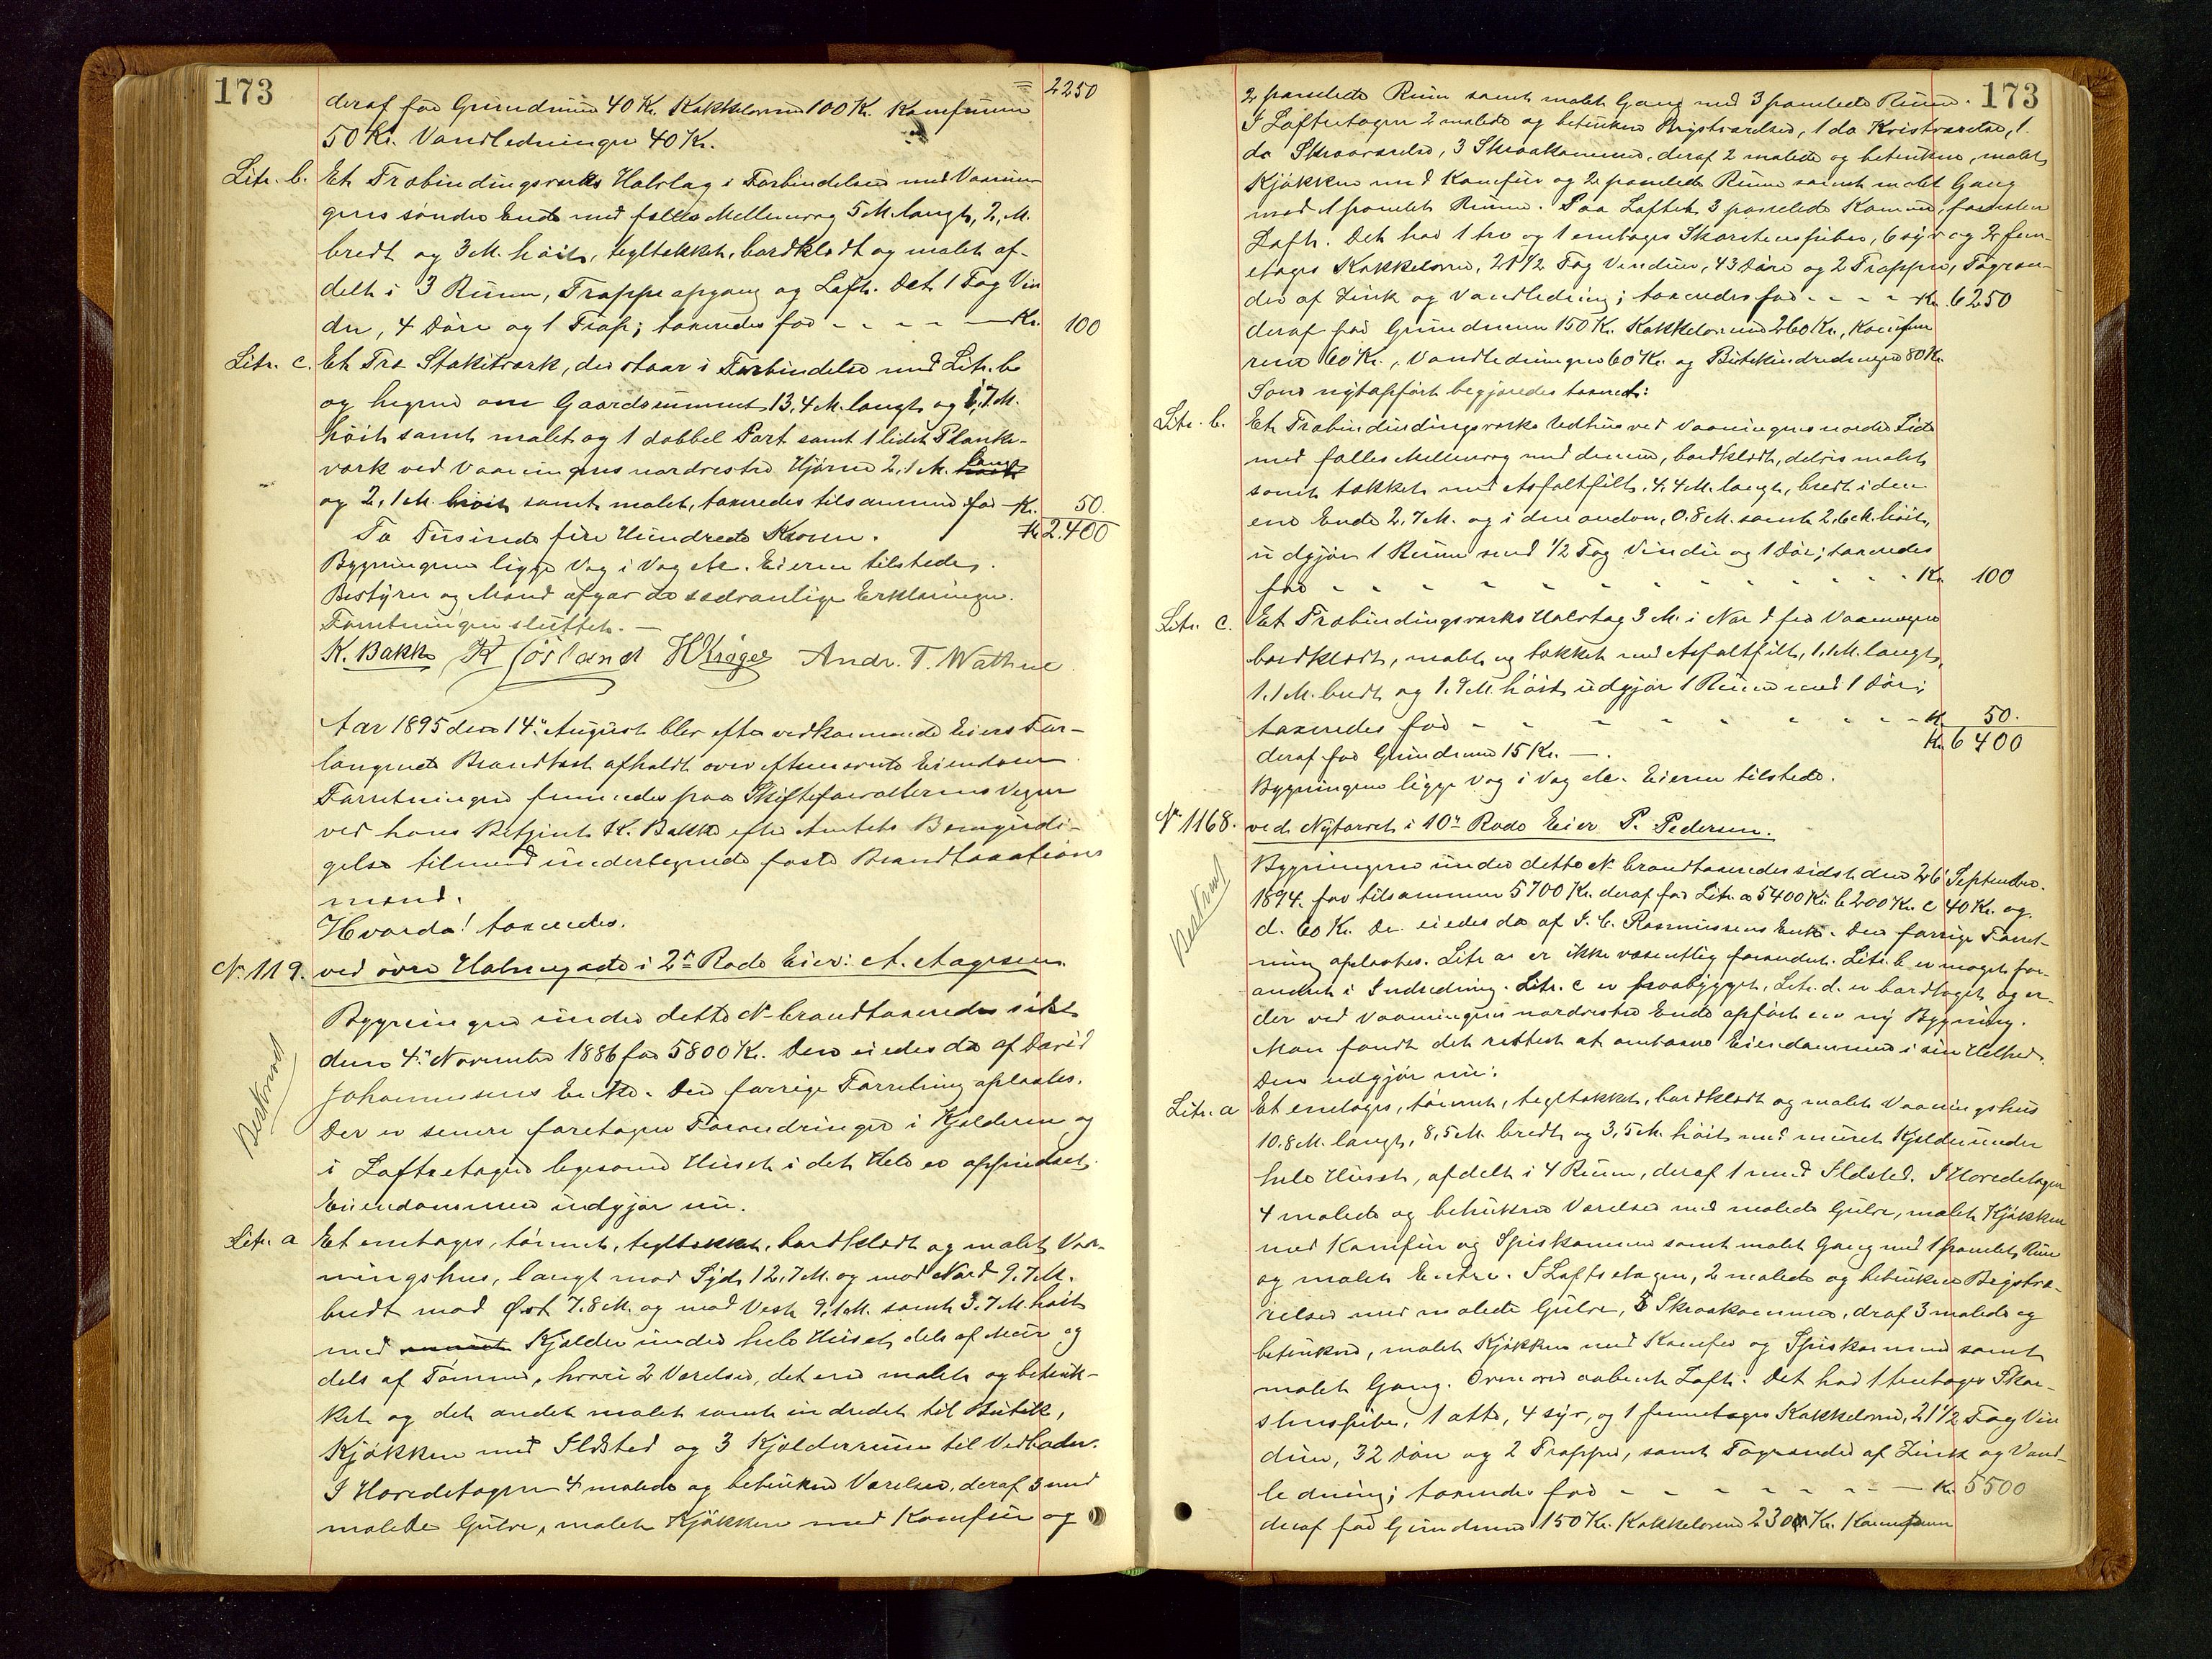 173
= 2250
deraf for Grundmur 40 Kr. Kakkelovne 100 Kr. Komfurene
50 Kr. Vandledningen 40 Kr.
Litr. b. Et Træbindingsværks Halvtag i Forbindelse med Vaanin-
gens søndre Ende med fælles Mellemvæg 5 M. langt, 2, M.
bredt og 3 M. høit, tegltækket, bordklædt og malet af-
delt i 3 Rum, Trappeopgang og Loft. Det 1 Fag Vin
due, 4 Døre og 1 Trap; taxeredes for - - - - - Kr. 100
Litr. c. Et Træ Stakitværk, der staar i Forbindelse med Litr. b
og hegner om Gaardsrummet 13,4 M. langt og 1,7 M.
høit samt malet og 1 dobbel Port samt 1 lidet Planke-
værk ved Vaaningens nordvestre Hjørne 2,1 M. langt
og 2,1 M. høit samt malet, taxeredes tilsammen for Kr. 50.
To Tusinde fire Hundrede Kroner. Kr 2.400
Bygningerne ligge Væg i Væg &c. Eieren tilstede.
Bestyrer og Mænd afgav de sædvanlige Erklæringer.
Forretningen sluttet. —
K. Bakke K Gösland H Krøger Andr. T. Wathne
Aar 1895 den 14de August blev efter vedkommende Eiers For-
langende Brandtaxt afholdt over eftermeldte Eiendom
Forretningen fremmedes paa Skifteforvalterens Vegne
ved hans Betjent K. Bakke efter Amtets Bemyndi-
gelse tilmed undertegnede faste Brandtaxations
mænd.
Hvorda! taxeredes.
No. 119. ved øvre Holmegade i 2n Rode Eier: A. Aagesen.
Bygningen under dette No. brandtaxeredes sidst
den 4de November 1886 for 5800 Kr. Den eiedes da af David
Johannesens Enke. Den forrige Forretning oplæstes.
Der er senere foretagen Forandringer i Kjelderen og
i Loftsetagen ligesom Huset i det Hele er oppudset.
Eiendommen udgjør nu.
Beskreved
Litr. a Et enetages, tømret, tegltækket, bordklædt og malet Vaa-
ningshus, langt mod Syd 12,7 M. og mod Nord 9,7 M.
bredt mod Øst 7.8 M. og mod Vest 9,1 M. samt 3.7 M. høit
med Kjelder under hele Huset, dels af Mur og
dels af Tømmer, hvori 2 Værelser, det ene malet og betræk-
ket og det andet malet samt indredet til Butik,
Kjøkken med Ildsted og 3 Kjelderrum til Vedboder.
I Hovedetagen 4 malede og betrukne Værelser, deraf 3 med
malede Gulve, malet Kjøkken med Komfur og
173
2 panelede Rum samt malet Gang med 3 panelede Rum.
I Loftsetagen 2 malede og betrukne Brystværelser, 1 do Kvistværelse, 1.
do Skraaværelse, 3 Skraakammer, deraf 2 malede og betrukne, malet
Kjøkken med Komfur og 2 panelede Rum samt malet Gang
med 1 panelet Rum. Paa Loftet 3 panelede Kammer, forresten
Loft. Det har 1 tre og 1 enetages Skorstenspiber, 6 syv og 2 fem-
etages Kakkelovne, 21 1/2 Fag Vinduer, 43 Døre og 2 Trapper, Tagren-
der af Zink og Vandledning; taxeredes for - - - - Kr. 6250
deraf for Grundmuren 150 Kr. Kakkelovnene 260 Kr., Komfu-
rene 60 Kr., Vandledningen 60 Kr. og Butikindredningen 80 Kr.
Som nyopført begjæredes taxeret:
Litr. b. Et Træbindindingsværks Udhus ved Vaaningens nordre Side
med fælles Mellemvæg med denne, bordklædt, delvis malet
samt tækket med Asfaltfilt, 4.4 M. langt, bredt i den
ene Ende 2,7 M. og i den anden, 0.8 M. samt 2,6 M. høit,
udgjør 1 Rum med 1/2 Fag Vindu og 1 Dør; taxeredes
for - - - - - - - - - - - - Kr. 100
Litr. c. Et Træbindingsværks Halvtag 3 M. i Nord for Vaaningen
bordklædt, malet og tækket med Asfaltfilt, 1.1 M. langt,
1.1 M. bredt og 1.9 M. høit udgjør 1 Rum med 1 Dør;
taxeredes for - - - - - - - - - Kr 50.
Kr. 6400
deraf for Grundmur 15 Kr. —.
Bygningerne ligge Væg i Væg &c. Eieren tilstede.
No 1168. ved Nytorvet i 10n Rode Eier P. Pedersen.
Bygningerne under dette No. brandtaxeredes sidst den 26 September
1894. for tilsammen 5700 Kr. deraf for Litr. a 5400 Kr. b 200 Kr. c 40 Kr. og
d. 60 Kr. De eiedes da af J. C. Rasmussens Enke. Den forrige Forret-
ning oplæstes. Litr a er ikke væsentlig forandret. Litr. b er noget for-
andret i Indredning. Litr. c er paabygget, Litr. d. er borttaget og er-
der ved Vaaningens nordvestre Ende opført en ny Bygning.
Man fandt det rettest at omtaxere Eiendommen i sin Helhed.
Den udgjør nu:
Beskreved
Litr. a Et enetages, tømret, tegltækket, bordklædt og malet Vaaningshus
10.8 M. langt, 8,5 M. bredt og 3,5 M. høit med muret Kjelder under
hele Huset, afdelt i 4 Rum, deraf 1 med Ildsted. I Hovedetagen
4 malede og betrukne Værelser med malede Gulve, malet Kjøkken
med Komfur og Spiskammer samt malet Gang med 1 panelet Rum
og malet Entre. I Loftsetagen, 2 malede og betrukne Brystvæ-
relser med malede Gulve, 5 Skraakammer, deraf 3 malede og
betrukne, malet Kjøkken med Komfur og Spiskammer samt
malet Gang. Ovenover aabent Loft. Det har 1 tretages Skor-
stenspibe, 1 otte, 4 syv, og 1 femetages Kakkelovne, 21 1/2 Fag Vin
duer, 32 Døre og 2 Trapper, samt Tagrender af Zink og Vand-
ledning; taxeredes for - - - - - - - Kr. 5500
deraf for Grundmur 150 Kr. Kakkelovne 230 Kr. Komfuren